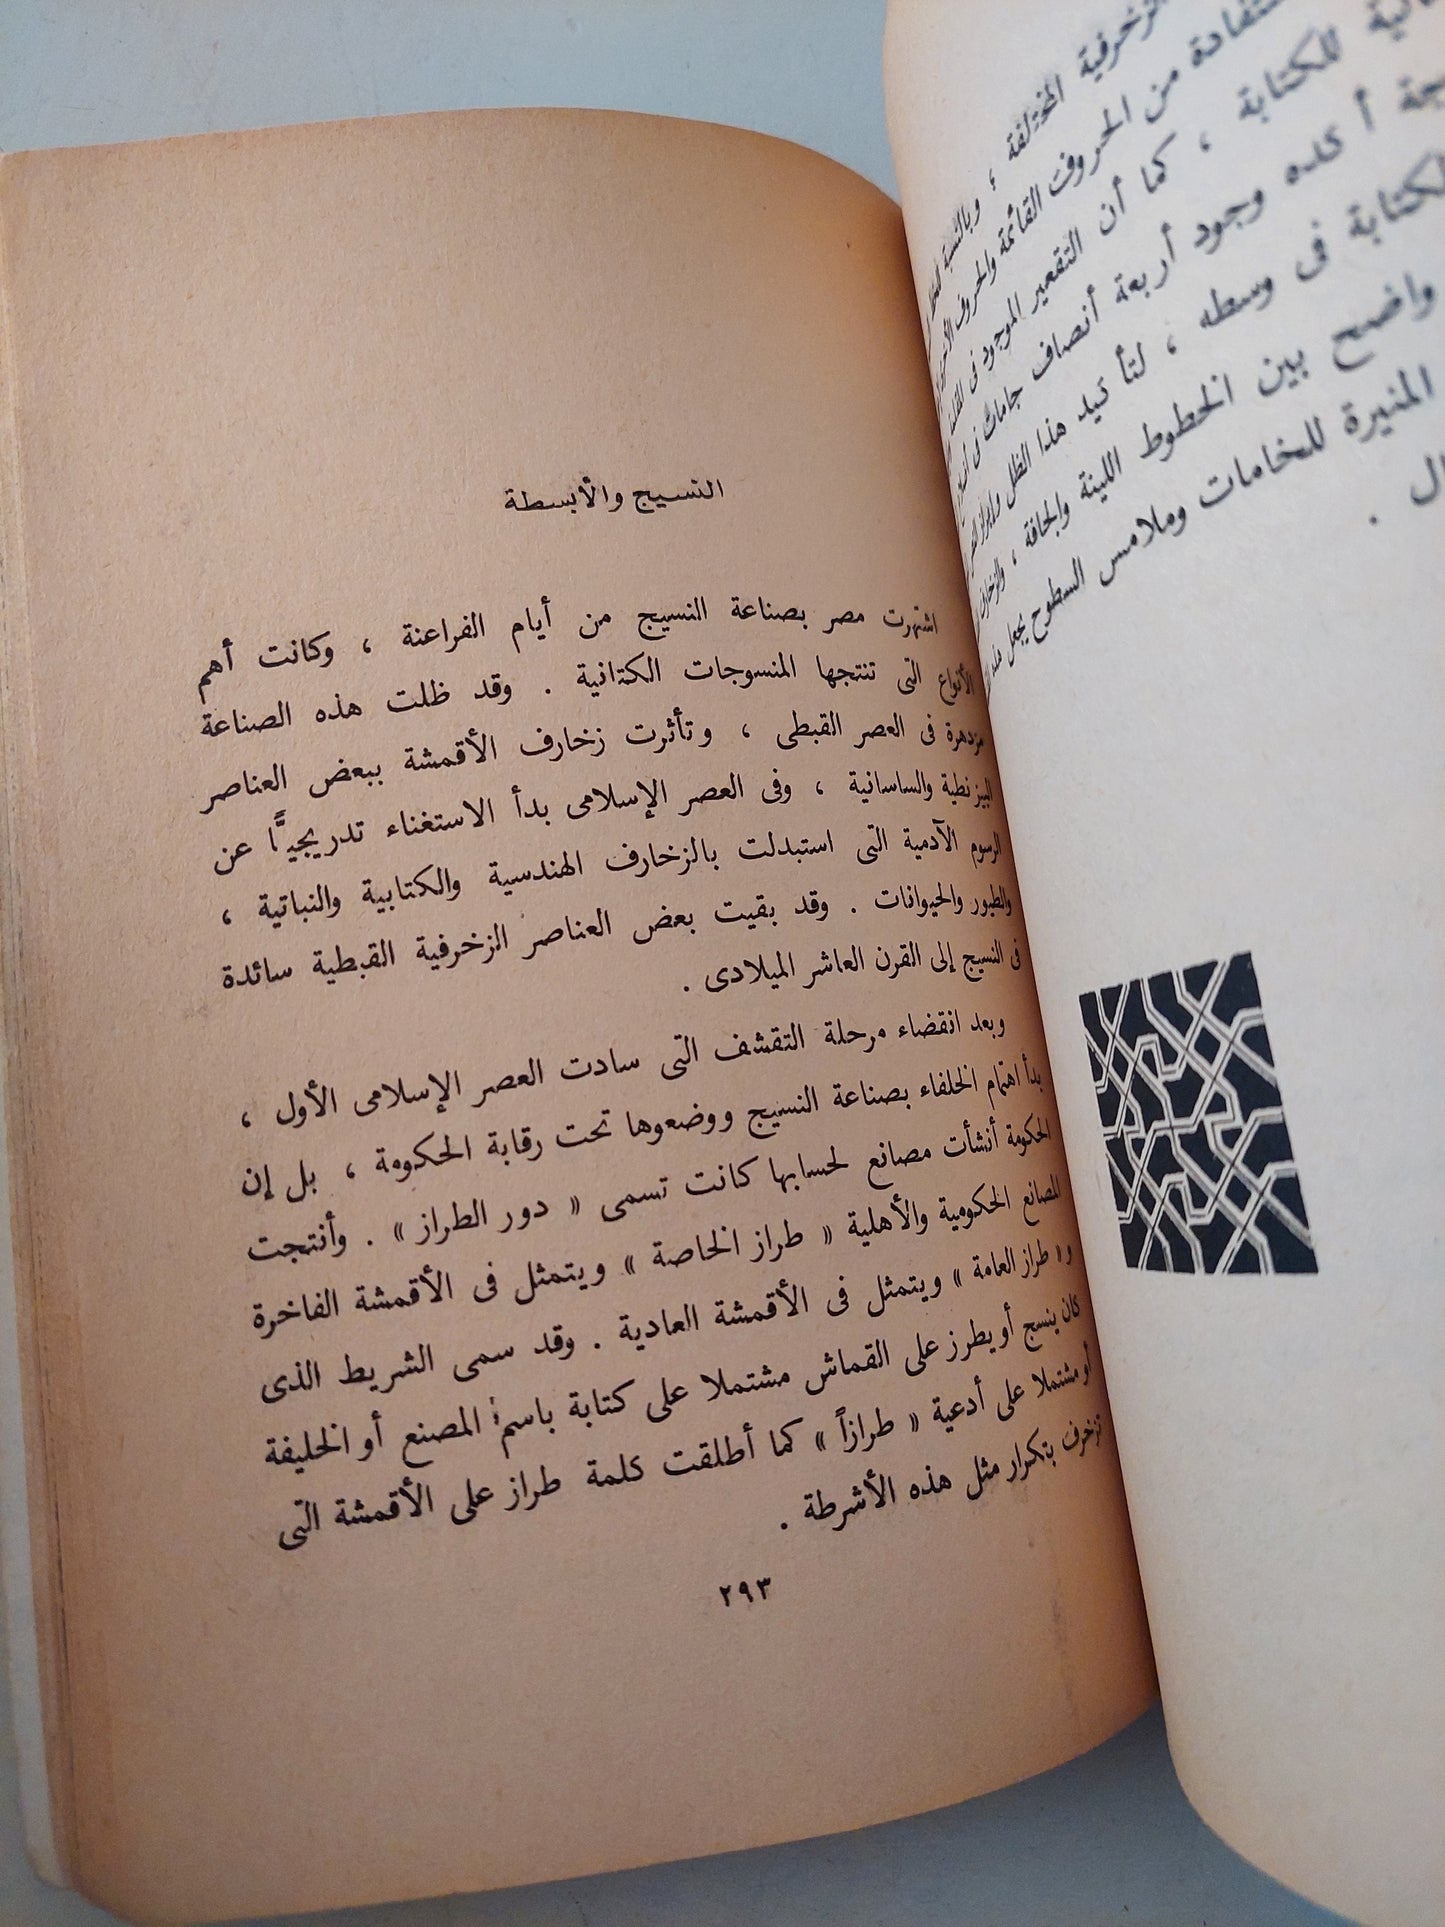 الزخرفية المختلفة ، وبالنسبة
من الحروف القائمة والحروف
للكتابة ، كما أن التقعير الموجود فى
وجود أربعة أنصاف جامات فى
فى وسطه ، لتأكيد هذا الظل وإبراز
واضح بين الخطوط اللينة والجافة ،
المنيرة للخامات وملامس السطوح يجعل
النسيج والأبسطة
اشتهرت مصر بصناعة النسيج من أيام الفراعنة ، وكانت أهم
الأنواع التى تنتجها المنسوجات الكتانية . وقد ظلت هذه الصناعة
مزدهرة فى العصر القبطى ، وتأثرت زخارف الأقمشة ببعض العناصر
البيزنطية والساسانية ، وفى العصر الإسلامى بدأ الاستغناء تدريجيًّا عن
الرسوم الآدمية التى استبدلت بالزخارف الهندسية والكتابية والنباتية ،
والطيور والحيوانات . وقد بقيت بعض العناصر الزخرفية القبطية سائدة
فى النسيج إلى القرن العاشر الميلادى .
وبعد انقضاء مرحلة التقشف التى سادت العصر الإسلامى الأول ،
بدأ اهتمام الخلفاء بصناعة النسيج ووضعوها تحت رقابة الحكومة ، بل إن
الحكومة أنشأت مصانع لحسابها كانت تسمى « دور الطراز » . وأنتجت
المصانع الحكومية والأهلية « طراز الخاصة » ويتمثل فى الأقمشة الفاخرة
و« طراز العامة » ويتمثل فى الأقمشة العادية . وقد سمى الشريط الذى
كان ينسج أو يطرز على القماش مشتملا على كتابة باسم المصنع أو الخليفة
أو مشتملا على أدعية « طرازاً » كما أطلقت كلمة طراز على الأقمشة التى
تزخرف بتكرار مثل هذه الأشرطة .
٢٩٣